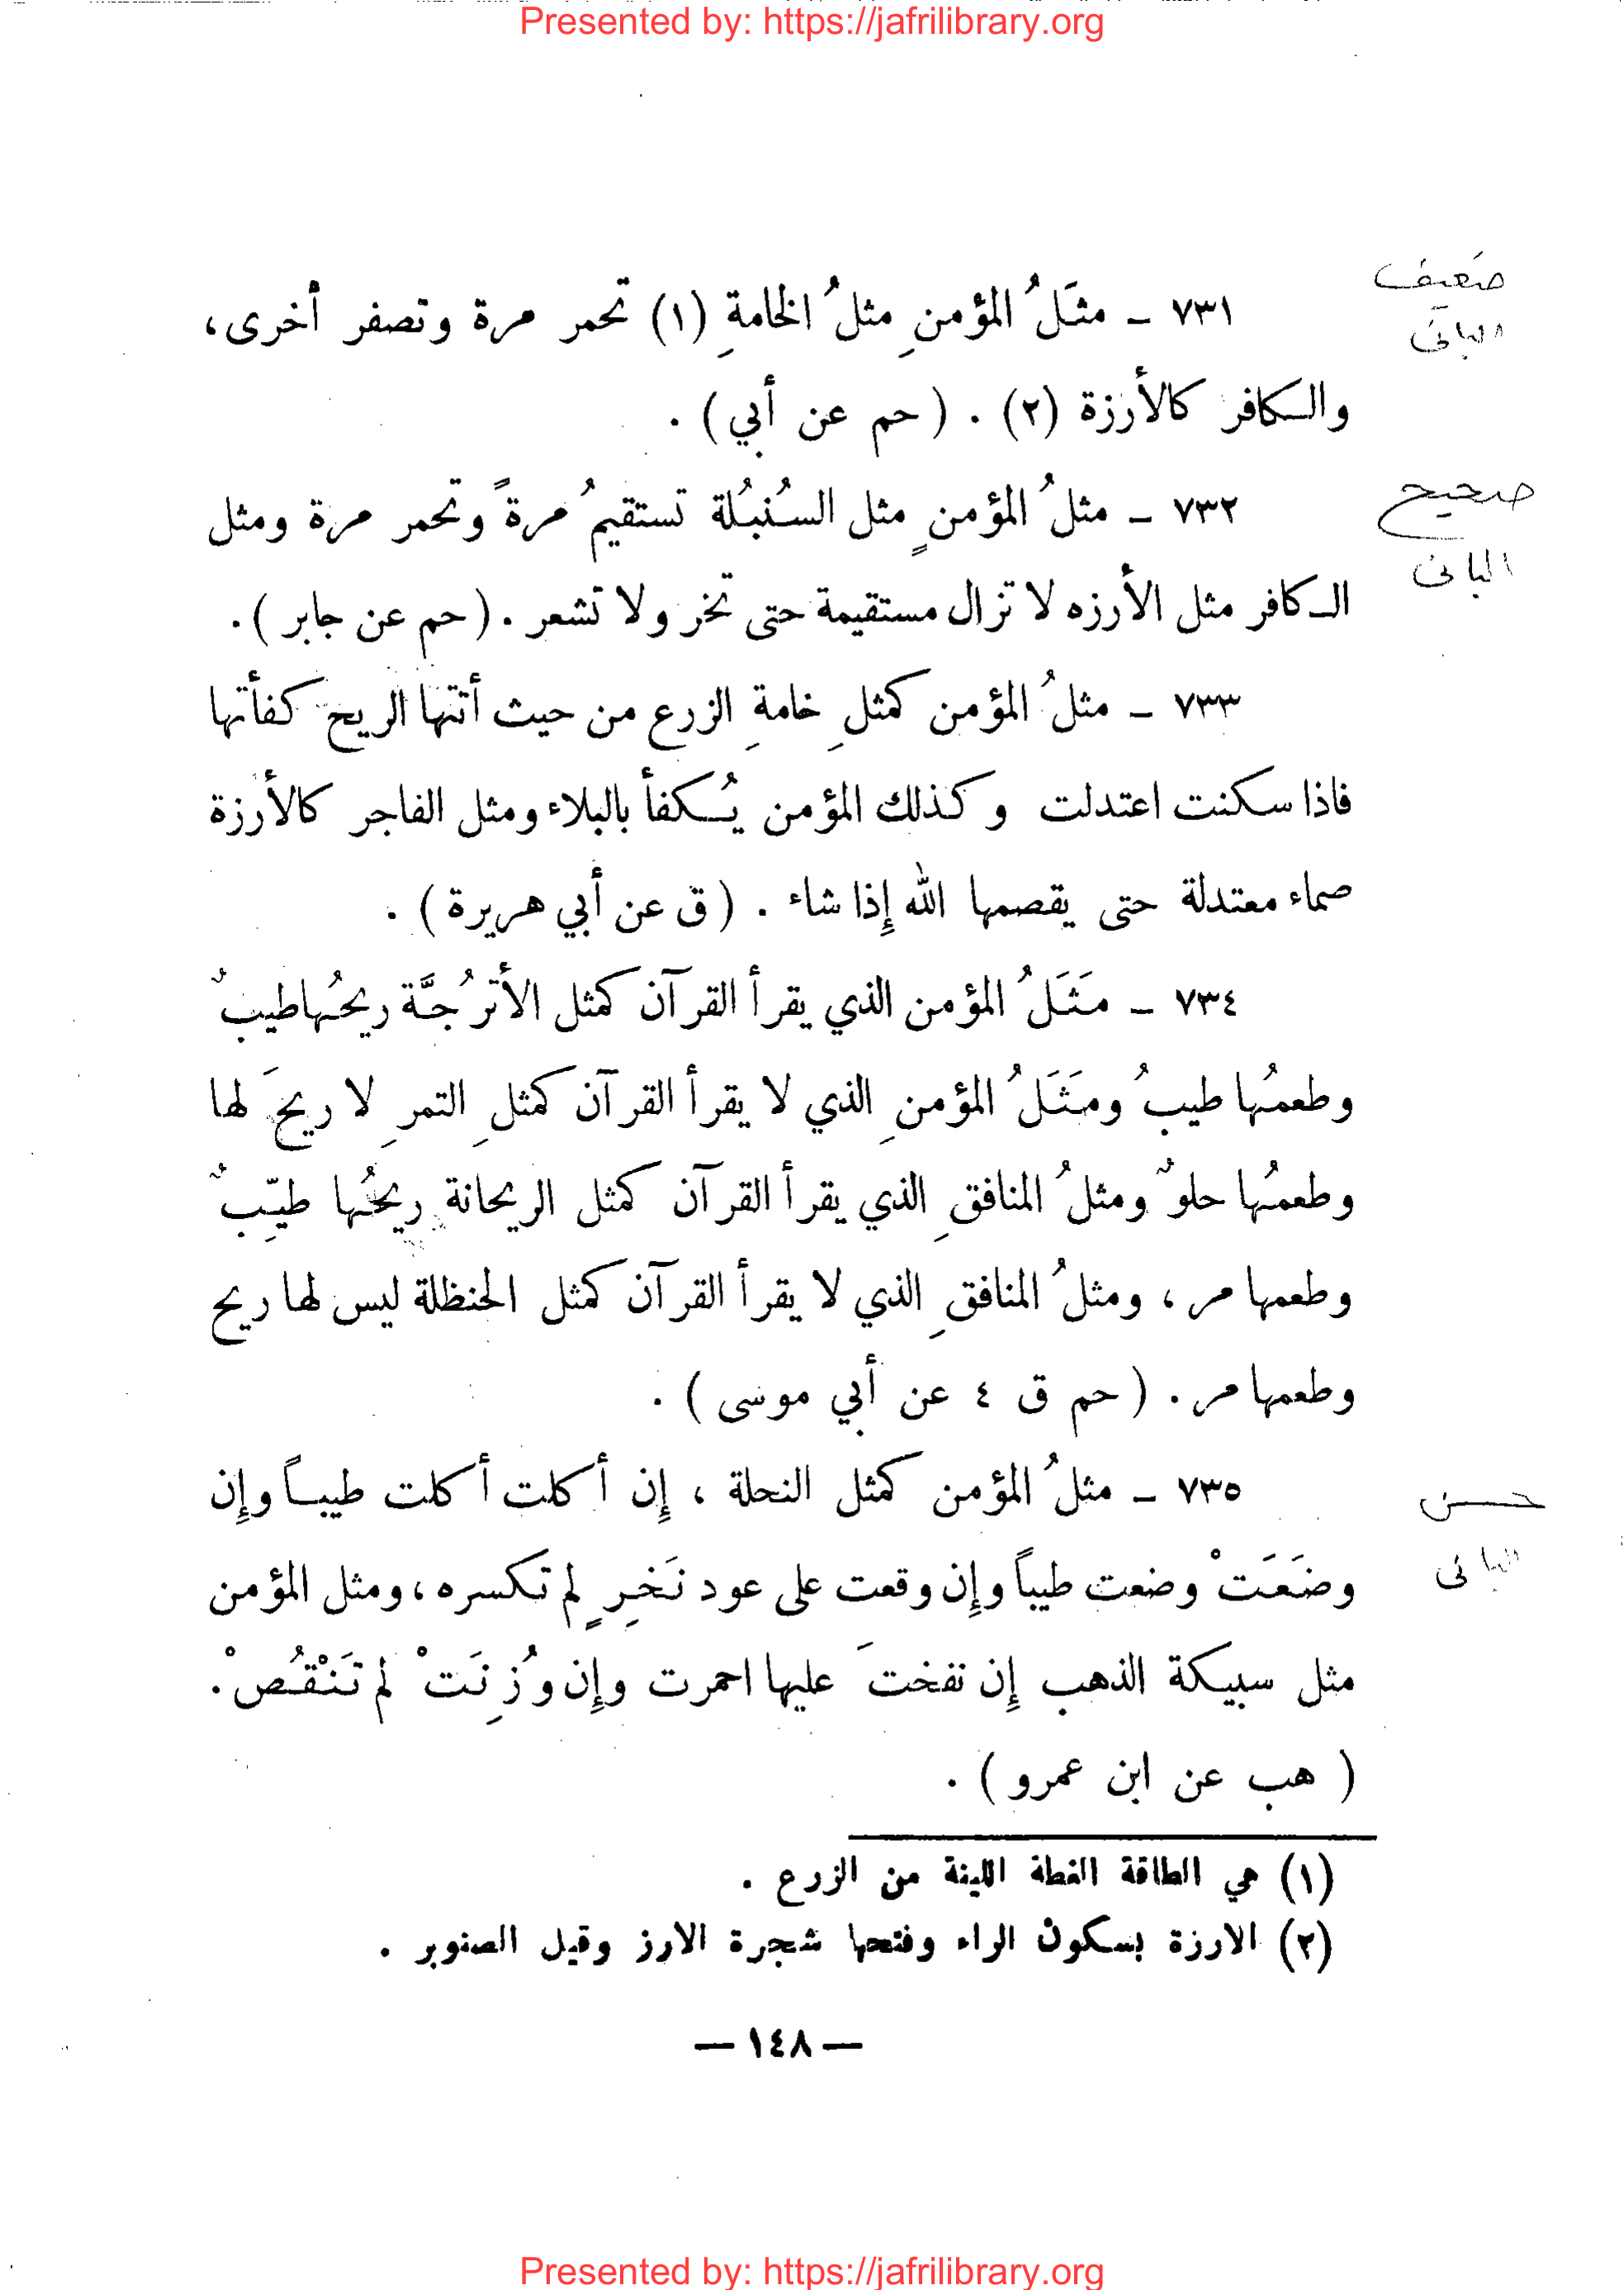 Presented by: https://jafrilibrary.org
ضعيف
البانى
٧٣١ ــ مثَلُ المؤمنِ مثلُ الخامةِ (١) تحمر مرة وتصفر أخرى،
والكافر كالأرزة (٢) . ( حم عن أبي ) .
صحيح
البانى
٧٣٢ ــ مثلُ المؤمنٍ مثل السُنبُلة تستقيمُ مرةً وتحمر مرة ومثل
الكافر مثل الأرزه لا تزال مستقيمة حتى تخر ولا تشعر . ( حم عن جابر ) .
٧٣٣ ــ مثلُ المؤمن كمثلِ خامةِ الزرع من حيث أتتها الريح كفأتها
فاذا سكنت اعتدلت وكذلك المؤمن يُكفأ بالبلاء ومثل الفاجر كالأرزة
صماء معتدلة حتى يقصمها الله إذا شاء . ( ق عن أبي هريرة ) .
٧٣٤ ــ مَثَلُ المؤمن الذي يقرأ القرآن كمثل الأترُجَّة ريحُها طيبٌ
وطعمُها طيبُ ومَثَلُ المؤمنِ الذي لا يقرأ القرآن كمثلِ التمرِ لا ريحَ لها
وطعمُها حلوٌ ومثلُ المنافقِ الذي يقرأ القرآن كمثل الريحانة ريحُها طيّبٌ
وطعمها مر ، ومثلُ المنافقِ الذي لا يقرأ القرآن كمثل الحنظلة ليس لها ريح
وطعمها مر . ( حم ق ٤ عن أبي موسى ) .
٧٣٥ ــ مثلُ المؤمن كمثل النحلة ، إن أكلت أكلت طيباً وإن
حسن
البانى
وضَعَتْ وضعت طيباً وإن وقعت على عود نَخرٍ لم تكسره ، ومثل المؤمن
مثل سبيكة الذهب إن نفختَ عليها احمرت وإن وُزِنَتْ لم تَنْقُصْ.
( هب عن ابن عمرو ) .
(١) هي الطاقة الغطة اللينة من الزرع .
(٢) الارزة بسكون الراء وفتحها شجرة الارز وقيل الصنوبر .
— ١٤٨ —
Presented by: https://jafrilibrary.org